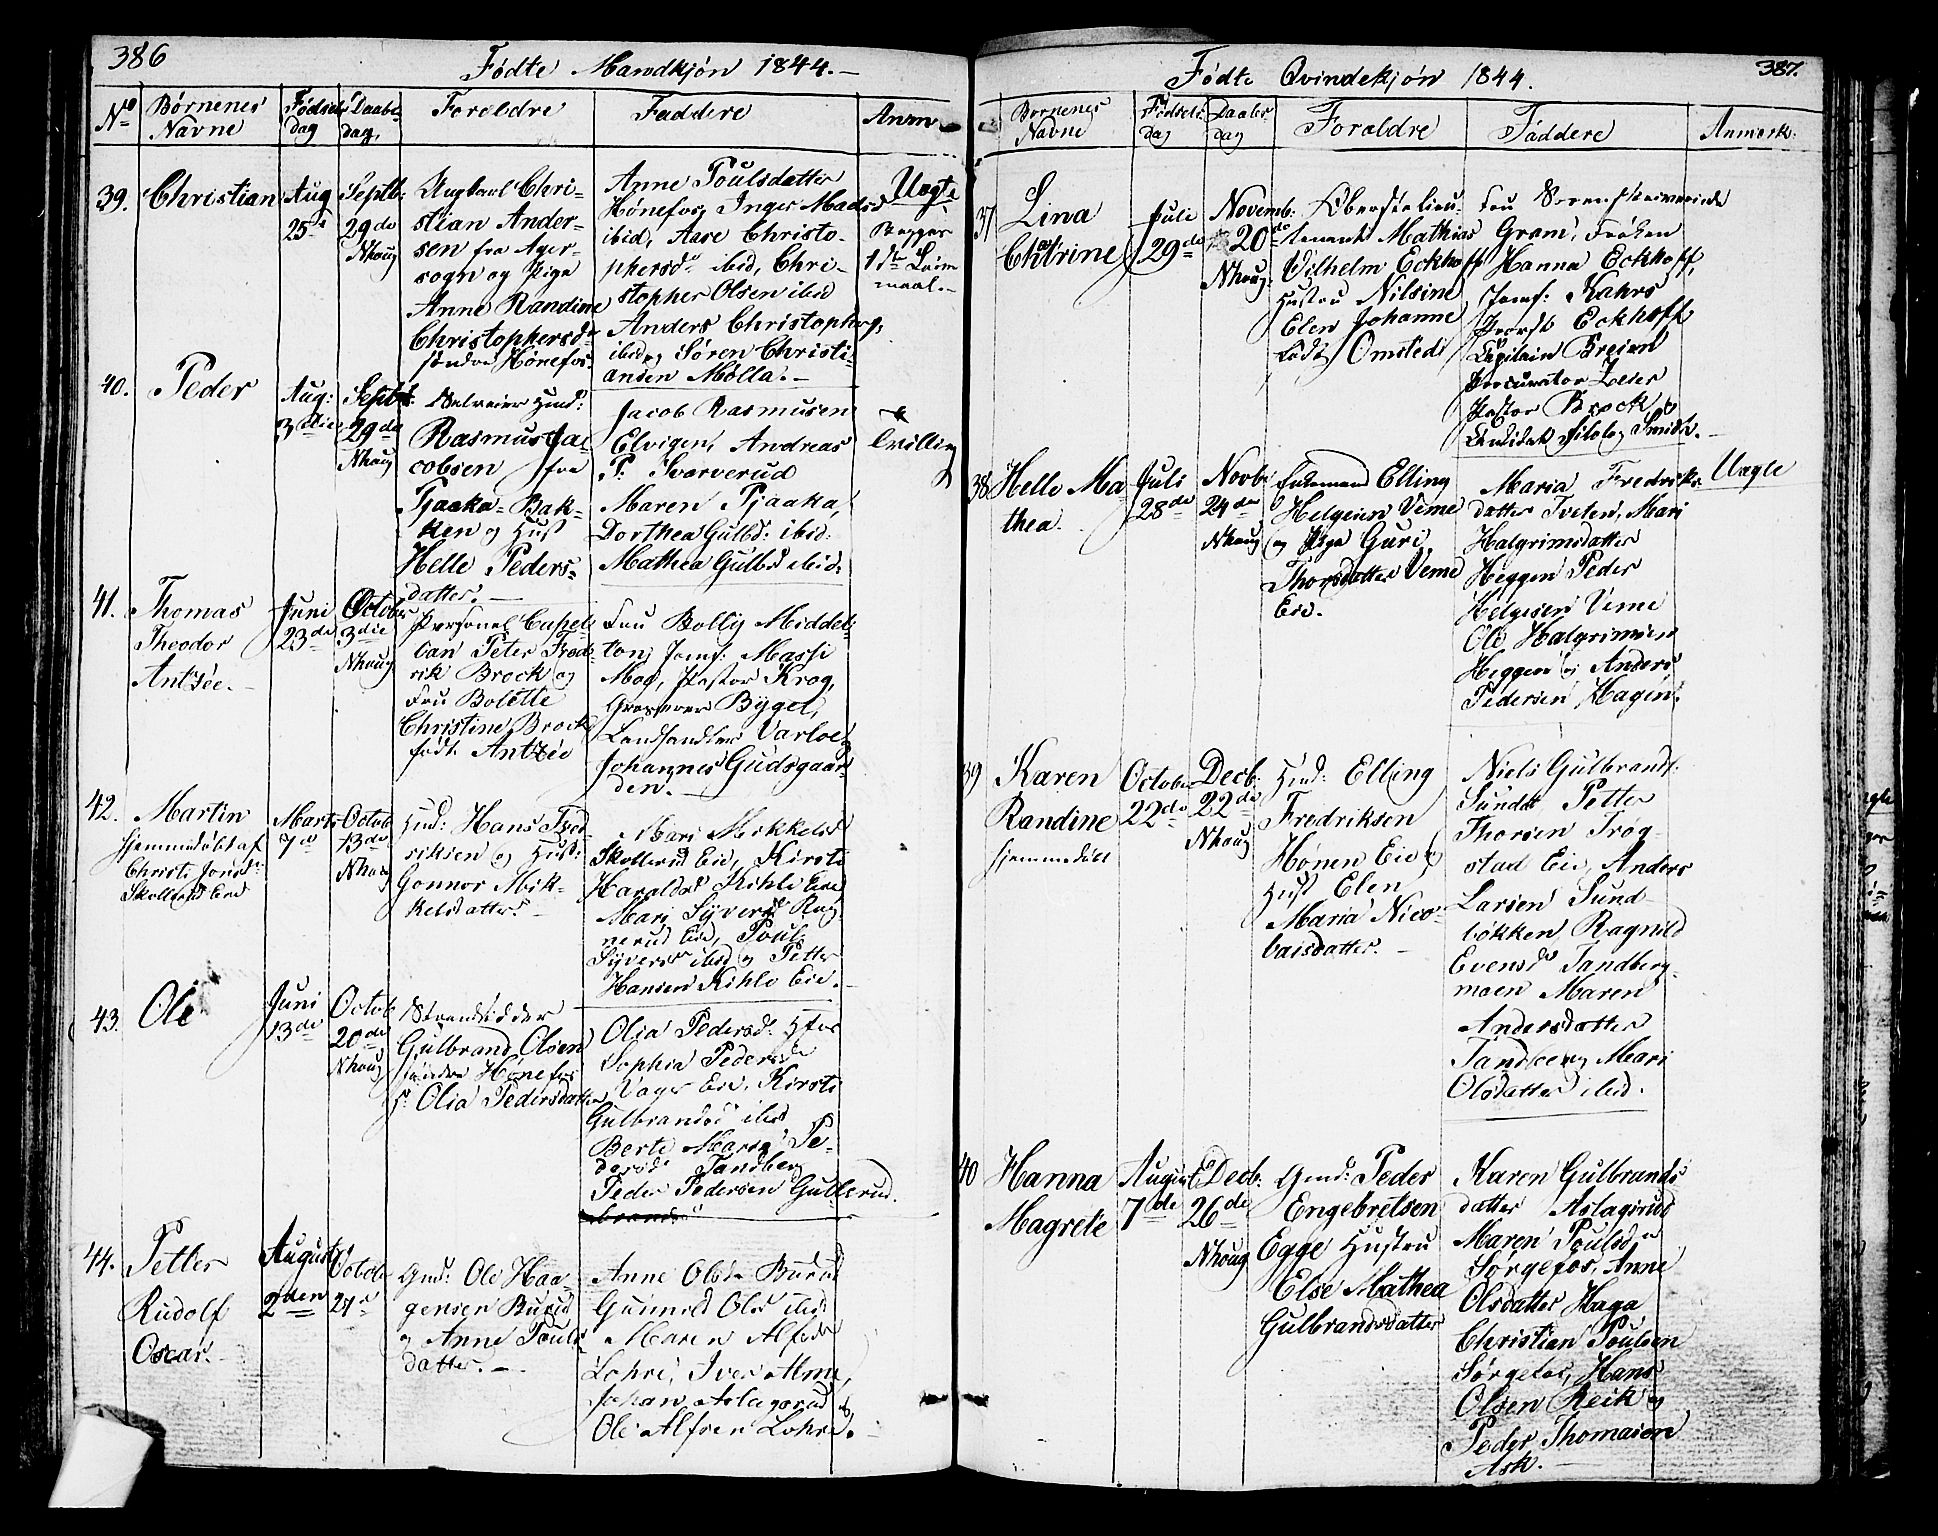 386
Fødte Mandkjøn 1844.
No
Børnenes Navne
Fødsels dag
Daabs dag
Forældre
Faddere
Anm
39.
Christian
Aug 25
Septb: 29de Nhoug
Christian Andersen fra Ager-
sogn og Pige
Anne Randine
Christophersd
søndre Hønefos.
Anne Poulsdatter
Hønefos, Inger Madsd
ibid, Aase Christo-
phersd ibid, Chri-
stopher Olsen ibid
Anders Christophers,
ibid og Søren Christi-
ansen Mølla.
Uægte
Begges
1ste Leier
maal.
40.
Peder
Aug: 3die
Septb: 29de Nhoug
Selveier Huusd:
Rasmus Ja-
cobsen fra
Tjaaka-Bak-
ken og Hust
Helle Peders-
datter.
Jacob Rasmusen
Elvigen, Andreas
P. Svarverud
Maren Tjaaka,
Dorthea Gulbd: ibid.
Mathea Gulbd ibid.
Tvilling
41.
Thomas
Theodor
Antzée.
Juni 23de
Octob 3die Nhoug
Personel Capel-
lan Peter Fred-
rik Brock og
Fru Bolette
Christine Brock
født Antzée
Fru Bolly Middel-
ton, Jomf: Massi
Moe, Pastor Krog,
Grosserer Bygel,
Landhandler Varloe
Johannes Gudsgaar-
den.
42.
Martin
Hjemmedøbt af
Christi Jonsd:
Skollerud Eie
Marts 7de
Octob 13de Nhoug
Hmd: Hans Fred-
riksen og Hust:
Gonnor Mik-
kelsdatter.
Mari Mikkelsd
Skollerud Eie, Kirsti
Haraldsd Kihle Eie
Mari Syversd Rag-
nerud Eie, Poul
Syvers ibid og Petter
Hansen Kihle Eie.
43.
Ole
Juni 13de
Octob 20de Nhoug
Strandsidder
Gulbrand Olsen
søndre Hønefos
H. Olia Pedersdatter
Olia Pedersd: Hfos
Sophia Pedersd
Vager Eie, Kirsti
Gulbrandsd ibid
Berte Maria Pe-
dersd Tandberg
Peder Pedersen Gullerud.
44.
Petter
Rudolf
Oscar.
August 2den
Octob 27
Gmd: Ole Haa-
gensen Burud
og Anne Pouls-
datter.
Anne Olsd Burud
Gunnild Olsd ibid
Maren Alfsd
Lohre, Iver Alme,
Johan Aslagsrud &
Ole Alfsen Lohre.
387.
Fødte Qvindekjøn 1844.
Børnenes Navne
Fødsels dag
Daabs dag
Forældre
Faddere
Anmærk:
37
Lina
Chatrine
Juli 29de
Novemb: 20de Nhoug
Oberstlieu-
tenant Mathias
Vilhelm Eckhoff
Hustru Nilsine
Elen Johanne
født Omsted
Fru Sorenskriverinde
Gram, Frøken
Hanna Eckhoff,
Jomf: Rahrs
Provst Eckhoff,
Capitain Breien
Procurator Loeser
Pastor Brock, &
Candidat Filolog Smith.
38
Helle Ma-
thea.
Juli 28de
Novb: 24de Nhoug
Enkemand Elling
Helgesen Veme
og Pige Guri
Thorsdatter Veme
Eie.
Maria Fredriks-
datter Tveten, Mari
Halgrimsdatter
Heggen Peder
Helgesen Veme
Ole Halgrimsen
Heggen og Anders
Pedersen Hagen.
Uægte
39
Karen
Randine
hjemmedøbt
October 22de
Decb: 22de Nhoug
Hmd: Elling
Fredriksen
Hønen Eie &
Hust Elen
Maria Nico-
laisdatter.
Niels Gulbrands.
Sundet Petter
Thorsen Trøg-
stad Eie, Anders
Larsen Sund-
løkken, Ragnild
Evensd Tandberg-
moen Maren
Andersdatter
Tandberg Mari
Olsdatter ibid.
40
Hanna
Magrete
August 7de
Decb: 26de Nhoug
Gmd: Peder
Engebretsen
Egge Hustru
Else Mathea
Gulbrandsdatter
Karen Gulbrands
datter Aslagsrud
Maren Poulsd
Sørgefos, Anne
Olsdatter Haga
Christian Poulsen
Sørgefos, Hans
Olsen Reik og
Peder Thomasen
Ask.